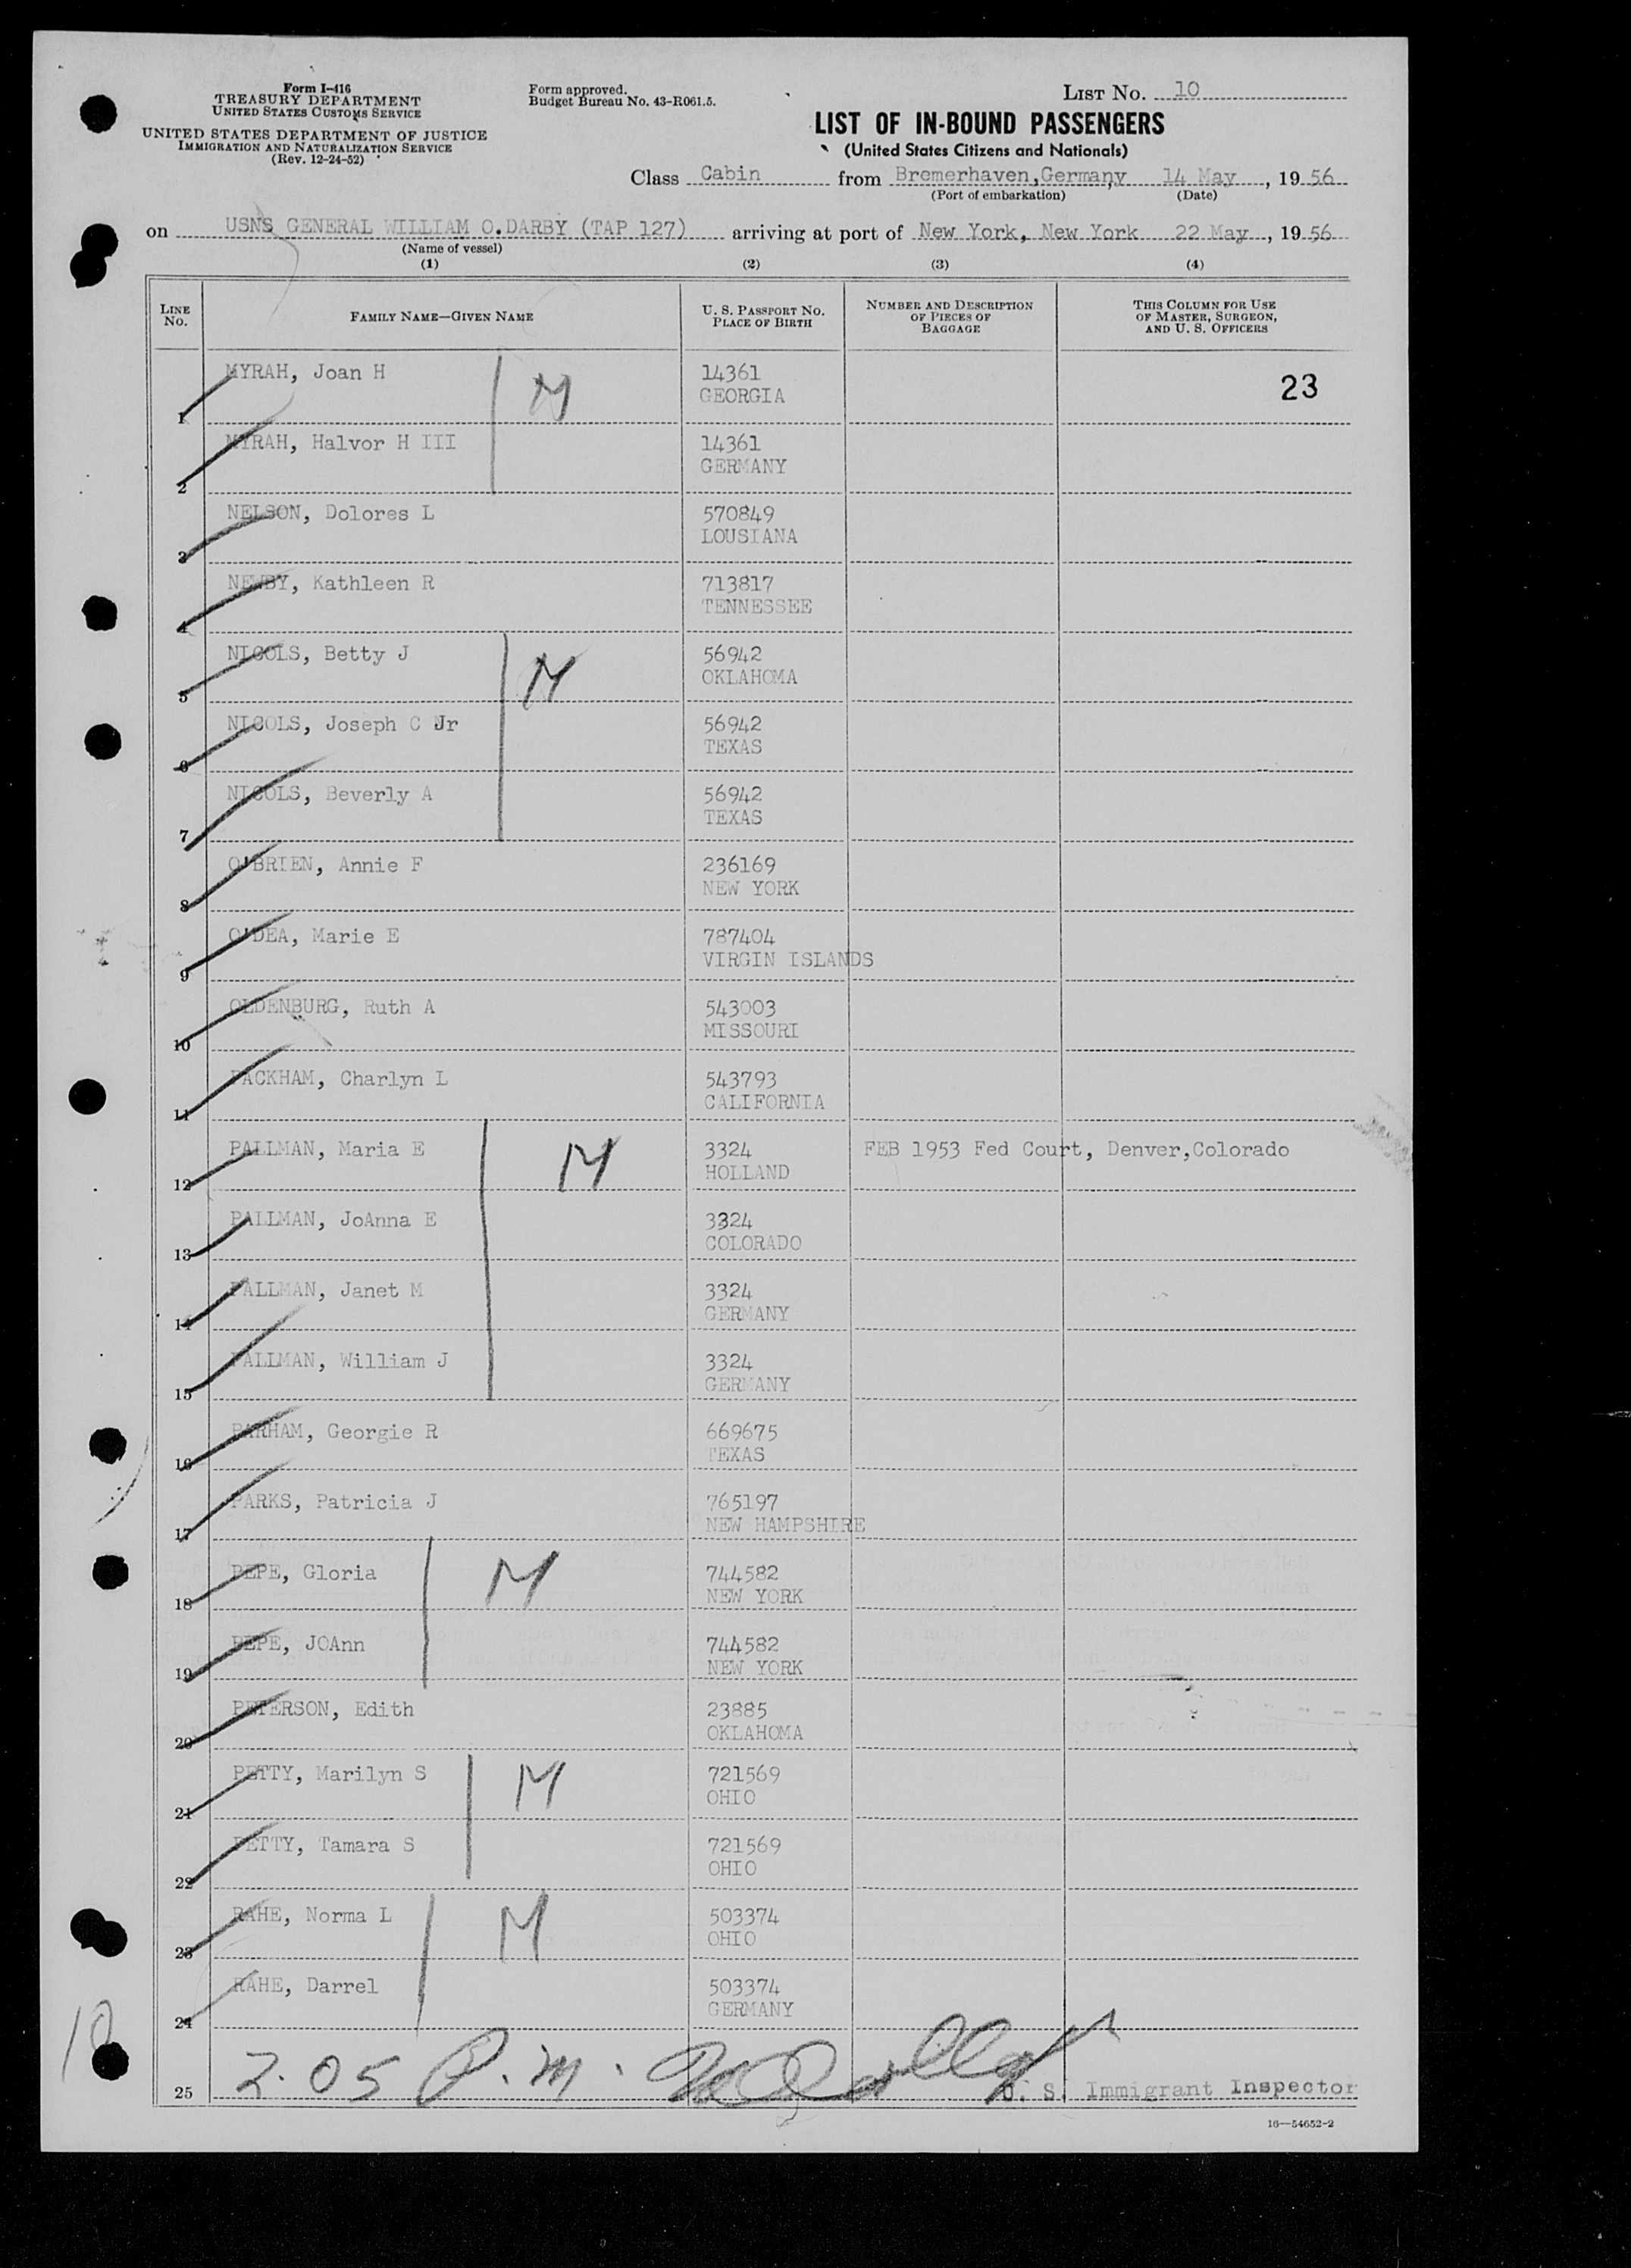 Form I-416
TREASURY DEPARTMENT
UNITED STATES CUSTOMS SERVICE
UNITED STATES DEPARTMENT OF JUSTICE
IMMIGRATION AND NATURALIZATION SERVICE
(Rev. 12-24-52)
Form approved.
Budget Bureau No. 43-R061.5.
LIST No. 10
LIST OF IN-BOUND PASSENGERS
(United States Citizens and Nationals)
Class Cabin from Bremerhaven,Germany 14 May, 1956
(Port of embarkation) (Date)
on USNS GENERAL WILLIAM O.DARBY (TAP 127) arriving at port of New York, New York 22 May, 1956
(Name of vessel)
(1) (2) (3) (4)
LINE No. FAMILY NAME—GIVEN NAME U. S. PASSPORT NO. PLACE OF BIRTH NUMBER AND DESCRIPTION OF PIECES OF BAGGAGE THIS COLUMN FOR USE OF MASTER, SURGEON, AND U. S. OFFICERS
MYRAH, Joan H M 14361 23
1 GEORGIA
MYRAH, Halvor H III 14361
2 GERMANY
NELSON, Dolores L 570849
3 LOUSIANA
NEWBY, Kathleen R 713817
4 TENNESSEE
NICOLS, Betty J M 56942
5 OKLAHOMA
NICOLS, Joseph C Jr 56942
6 TEXAS
NICOLS, Beverly A 56942
7 TEXAS
O'BRIEN, Annie F 236169
8 NEW YORK
O'DEA, Marie E 787404
9 VIRGIN ISLANDS
OLDENBURG, Ruth A 543003
10 MISSOURI
PACKHAM, Charlyn L 543793
11 CALIFORNIA
PALLMAN, Maria E M 3324 FEB 1953 Fed Court, Denver,Colorado
12 HOLLAND
PALLMAN, JoAnna E 3324
13 COLORADO
PALLMAN, Janet M 3324
14 GERMANY
PALLMAN, William J 3324
15 GERMANY
PARHAM, Georgie R 669675
16 TEXAS
PARKS, Patricia J 765197
17 NEW HAMPSHIRE
PEPE, Gloria M 744582
18 NEW YORK
PEPE, JOAnn 744582
19 NEW YORK
PETERSON, Edith 23885
20 OKLAHOMA
PETTY, Marilyn S M 721569
21 OHIO
PETTY, Tamara S 721569
22 OHIO
RAHE, Norma L M 503374
23 OHIO
RAHE, Darrel 503374
24 GERMANY
10
2.05 P.m.
25 U. S. Immigrant Inspector
16—54652-2